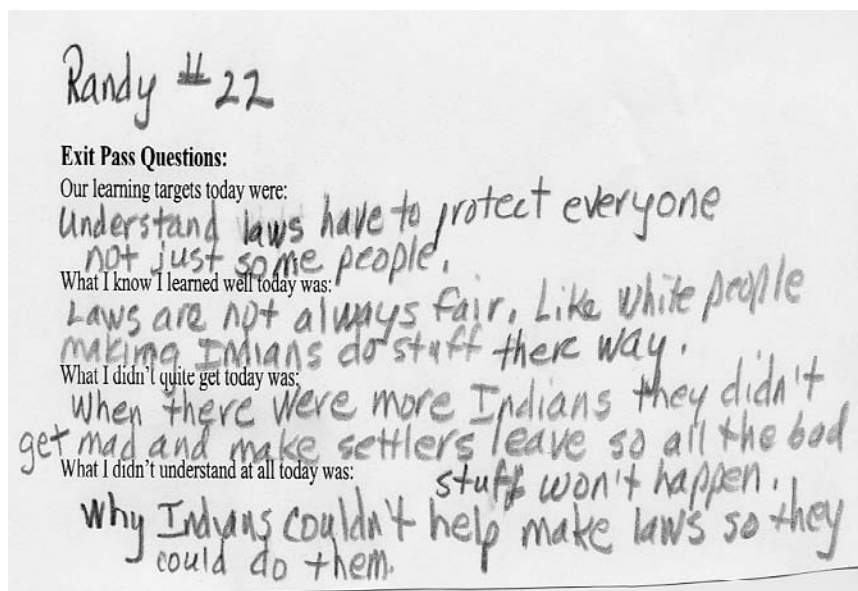 Randy #22
Exit Pass Questions:
Our learning targets today were:
Understand laws have to protect everyone
not just some people.
What I know I learned well today was:
Laws are not always fair. Like White people
making Indians do stuff there way.
What I didn't quite get today was:
When there were more Indians they didn't
get mad and make settlers leave so all the bad
stuff won't happen.
What I didn't understand at all today was:
Why Indians couldn't help make laws so they
could do them.